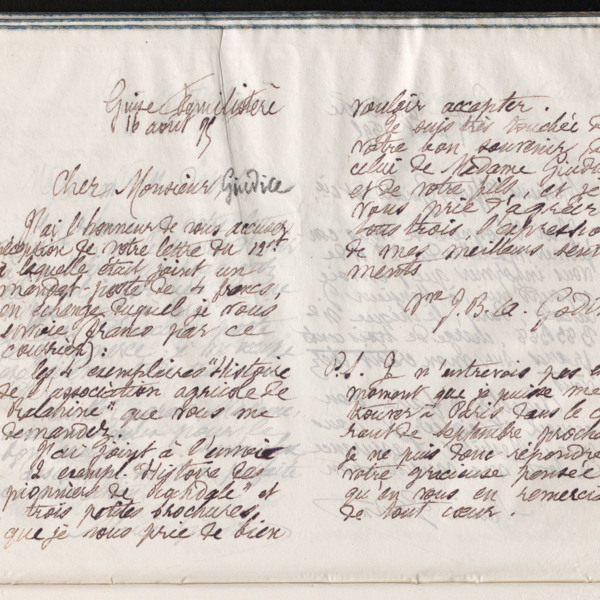 Guise Familistère
16 août 95
Cher Monsieur Giudice
J'ai l'honneur de vous accuser
réception de votre lettre du 12 ct
à laquelle était joint un
mandat-poste de 4 francs,
en échange duquel je vous
envoie (franco par ce
courrier):
les 4 exemplaires "Histoire
de l'association agricole de
Ralahine" que vous me
demandez.
J'ai joint à l'envoi
2 exempl. "Histoire des
pionniers de Rochdale" et
trois petites brochures,
que je vous prie de bien
vouloir accepter.
Je suis très touchée d
votre bon souvenir, de
celui de Madame Giudi
et de votre fils, et je
vous prie d'agréer
tous trois, l'expression
de mes meilleurs senti
ments
Vve J. B. A. Godin
P.S. Je n'entrevois pas en
moment que je puisse me
trouver à Paris dans le cou
rant de septembre prochain
je ne puis donc répondre
votre gracieuse pensée
qu'en vous en remercia
de tout cœur.